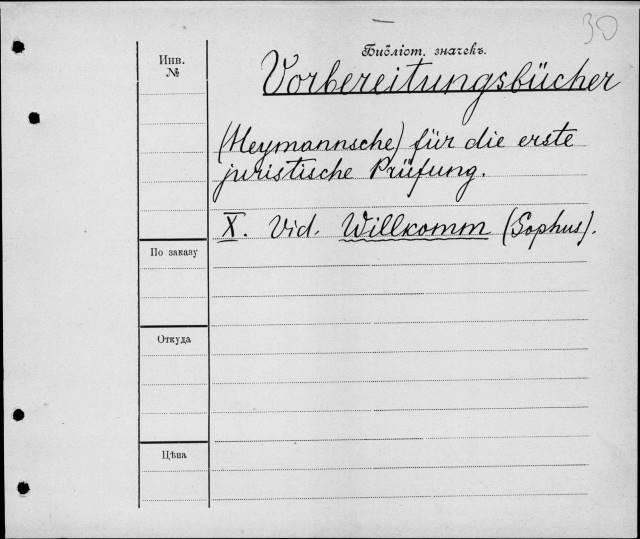 30
Библіот. значекъ.
Инв.
№
Vorbereitungsbücher
(Heymannsche) für die erste
juristische Prüfung.
X. Vid. Willkomm (Sophus).
По заказу
Откуда
Цѣна